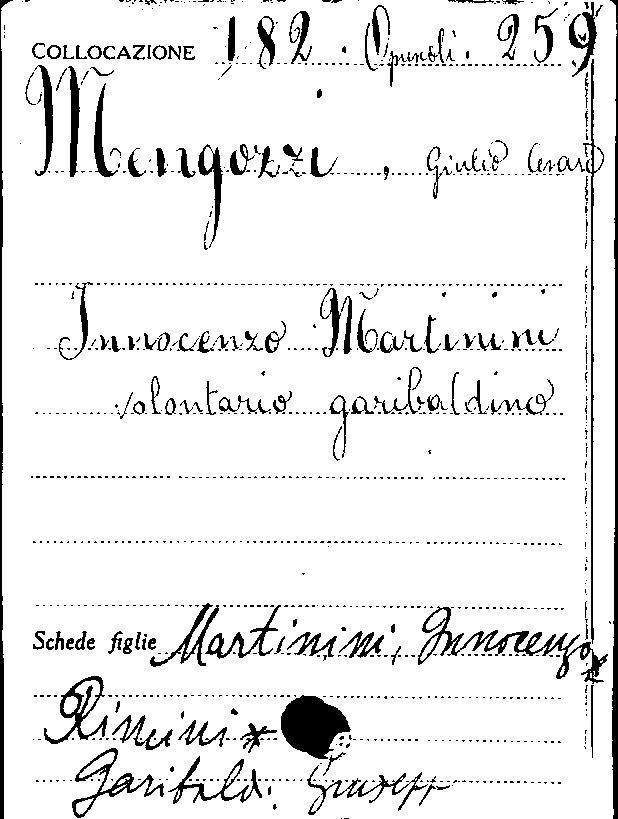 COLLOCAZIONE 182. Opuscoli. 259
Mengozzi, Giulio Cesare
Innocenzo Martinini
volontario garibaldino
Schede figlie Martinini, Innocenzo *
Rimini *
Garibaldi. Giusepp